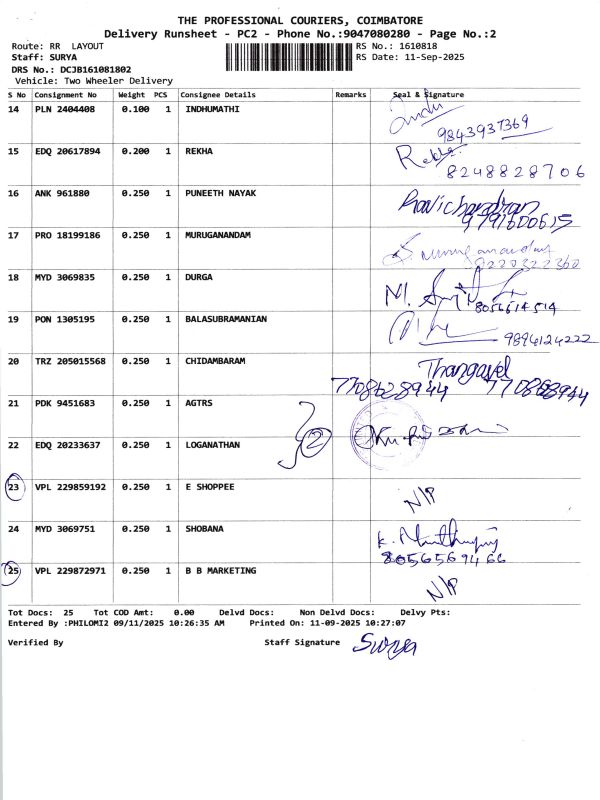 THE PROFESSIONAL COURIERS, COIMBATORE
Delivery Runsheet - PC2 - Phone No.:9047080280 - Page No.:2
Route: RR LAYOUT RS No.: 1610818
Staff: SURYA RS Date: 11-Sep-2025
DRS No.: DCJB161081802
Vehicle: Two Wheeler Delivery
S No Consignment No Weight PCS Consignee Details Remarks Seal & Signature
14 PLN 2404408 0.100 1 INDHUMATHI
9843937369
15 EDQ 20617894 0.200 1 REKHA Rekha
8248828706
16 ANK 961880 0.250 1 PUNEETH NAYAK Ravichandran
9791600615
17 PRO 18199186 0.250 1 MURUGANANDAM
9220322360
18 MYD 3069835 0.250 1 DURGA
8056614514
19 PON 1305195 0.250 1 BALASUBRAMANIAN
9894124222
20 TRZ 205015568 0.250 1 CHIDAMBARAM Thangavel
7708628944
21 PDK 9451683 0.250 1 AGTRS
2
22 EDQ 20233637 0.250 1 LOGANATHAN
23 VPL 229859192 0.250 1 E SHOPPEE N/P
24 MYD 3069751 0.250 1 SHOBANA
8056569466
25 VPL 229872971 0.250 1 B B MARKETING N/P
Tot Docs: 25 Tot COD Amt: 0.00 Delvd Docs: Non Delvd Docs: Delvy Pts:
Entered By :PHILOMI2 09/11/2025 10:26:35 AM Printed On: 11-09-2025 10:27:07
Verified By Staff Signature Surya